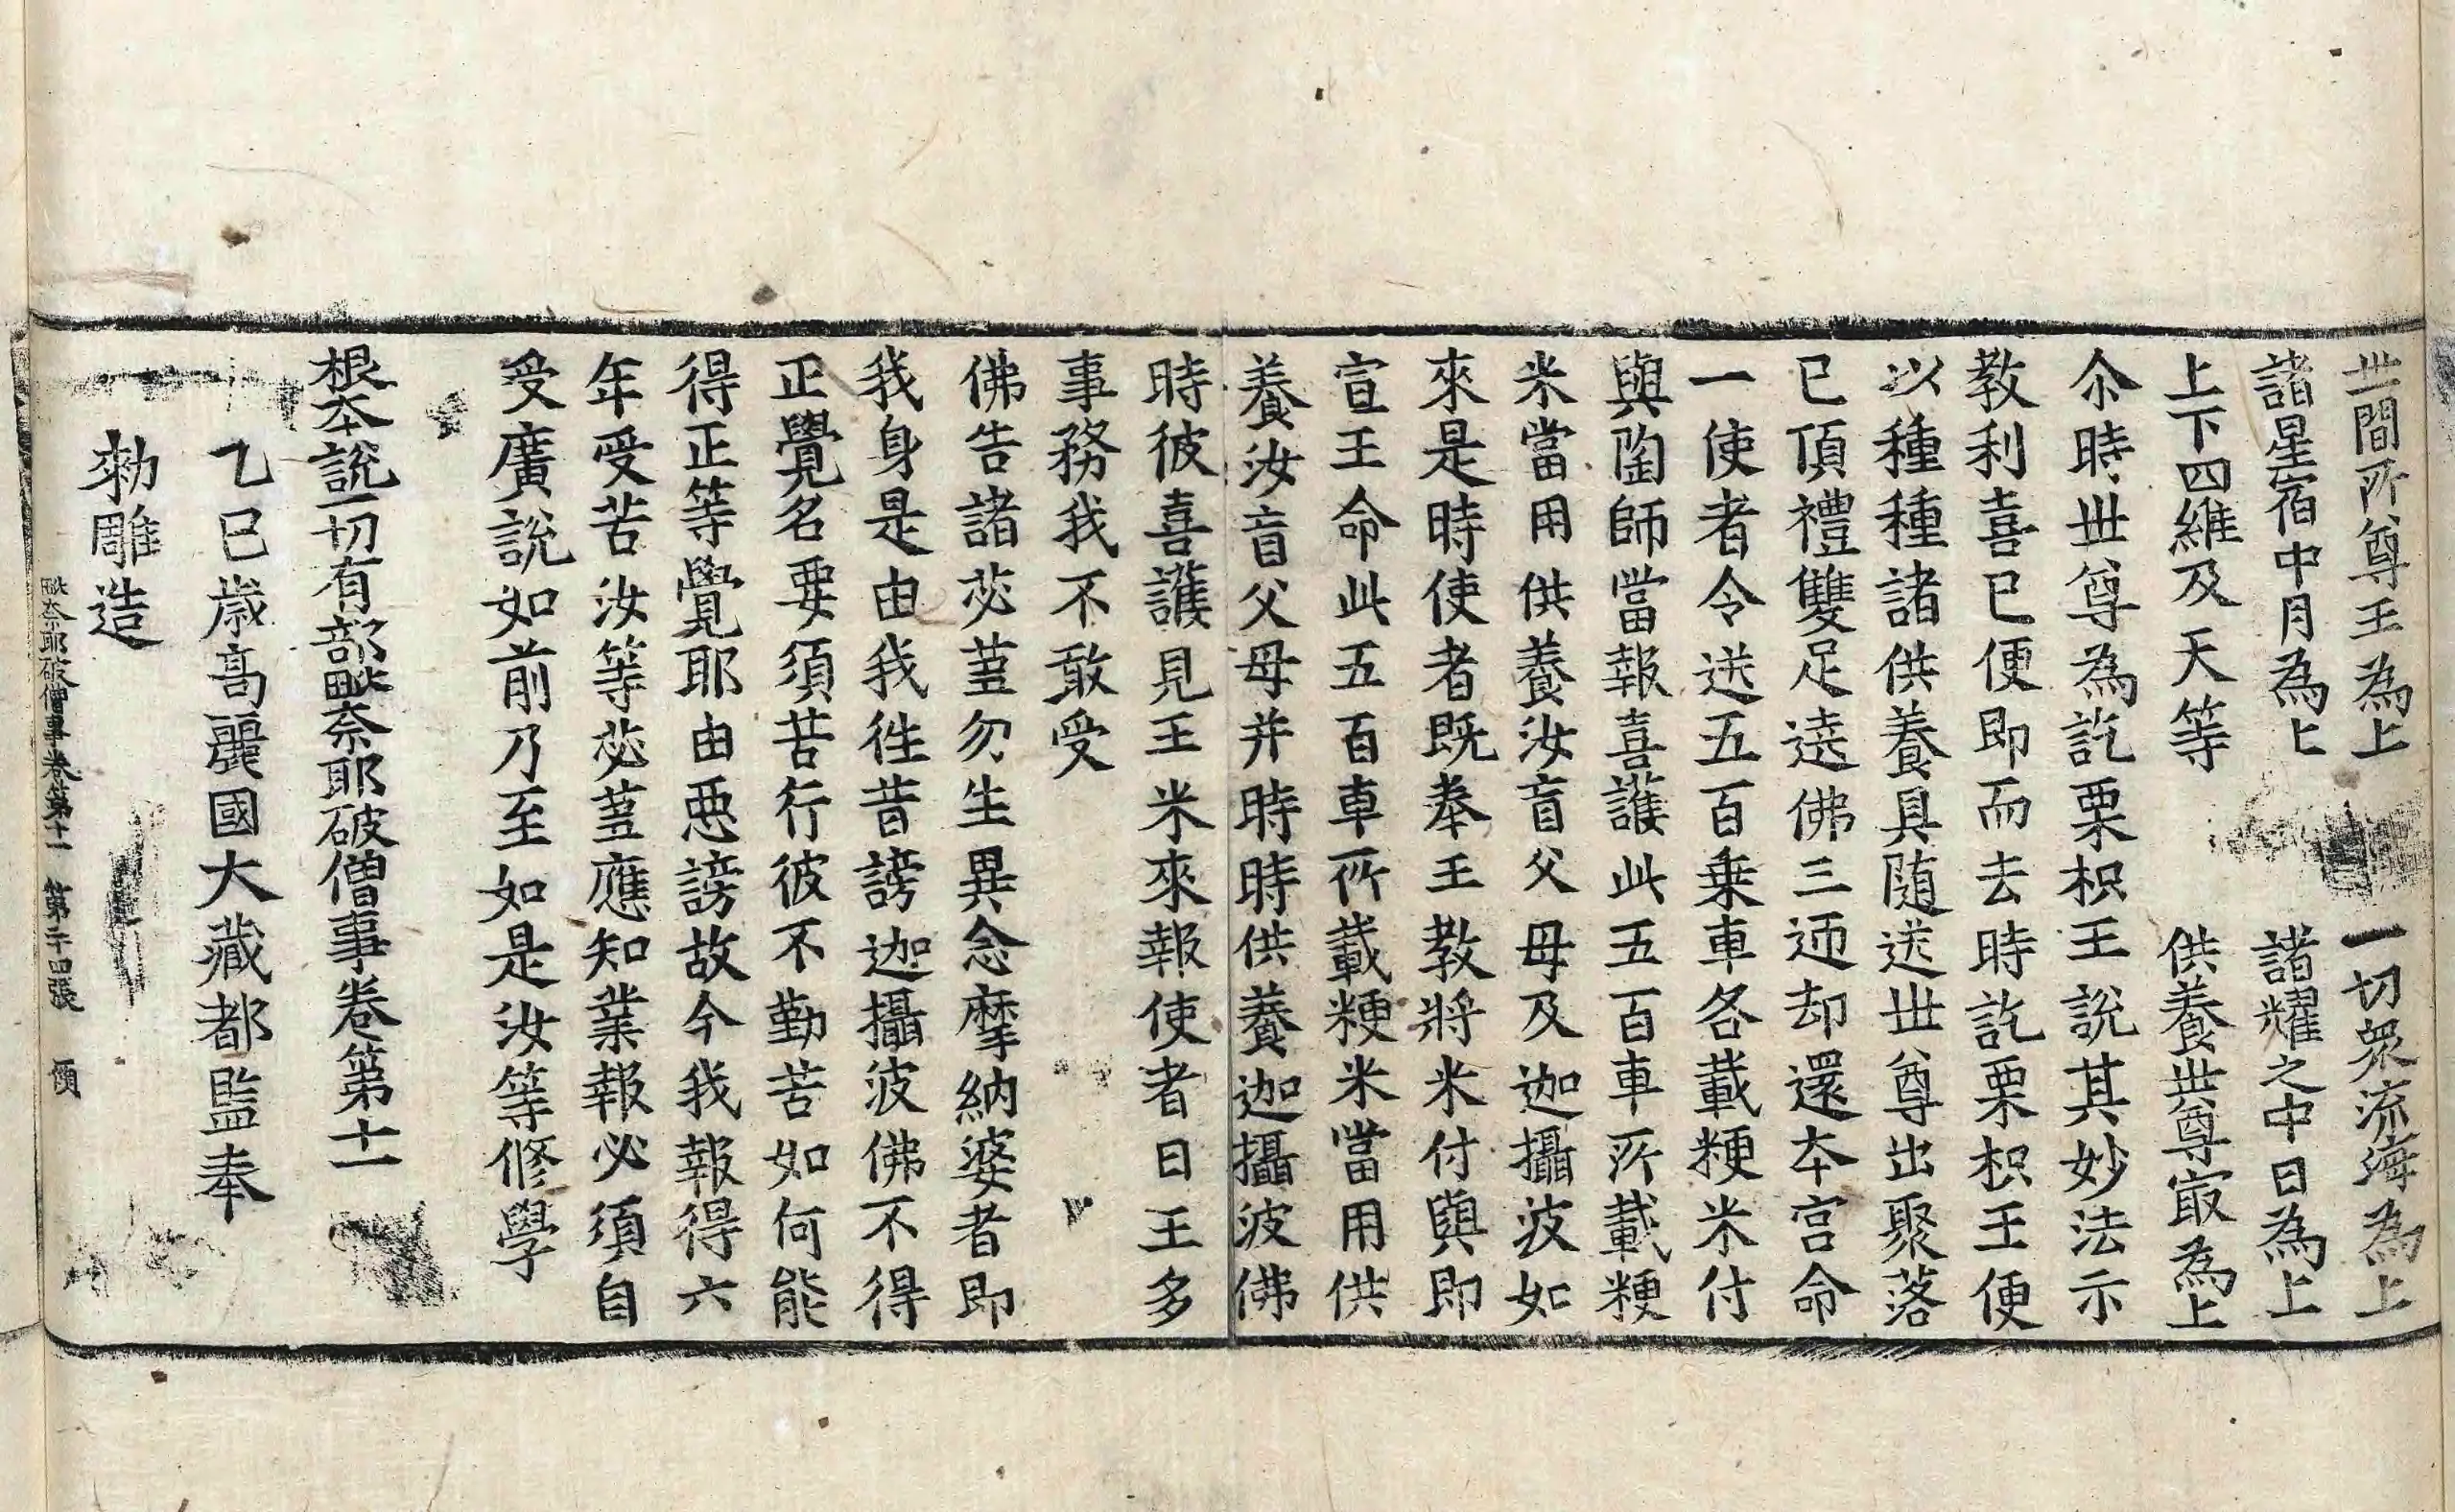 世間所尊王為上 一切衆流海為上
諸星宿中月為上 諸耀之中日為上
上下四維及天等 供養世尊㝡為上
尒時世尊為訖栗枳王說其妙法示
教利喜已便即而去時訖栗枳王便
以種種諸供養具随送世尊出聚落
已頂禮雙足遶佛三迊却還本宫命
一使者令送五百乗車各載粳米付
與陶師當報喜護此五百車所載粳
米當用供養汝盲父母及迦攝波如
來是時使者既奉王教將米付與即
宣王命此五百車所載粳米當用供
養汝盲父母并時時供養迦攝波佛
時彼喜護見王米來報使者曰王多
事務我不敢受
佛告諸苾蒭勿生異念摩納婆者即
我身是由我徃昔謗迦攝波佛不得
正覺名要須苦行彼不勤苦如何能
得正等覺耶由惡謗故今我報得六
年受苦汝等苾蒭應知業報必須自
受廣說如前乃至如是汝等修學
根本說一切有部毗奈耶破僧事卷第十一
乙巳歳髙麗國大藏都監奉
勅雕造
毗奈耶破僧事卷第十一 第二十四張 價